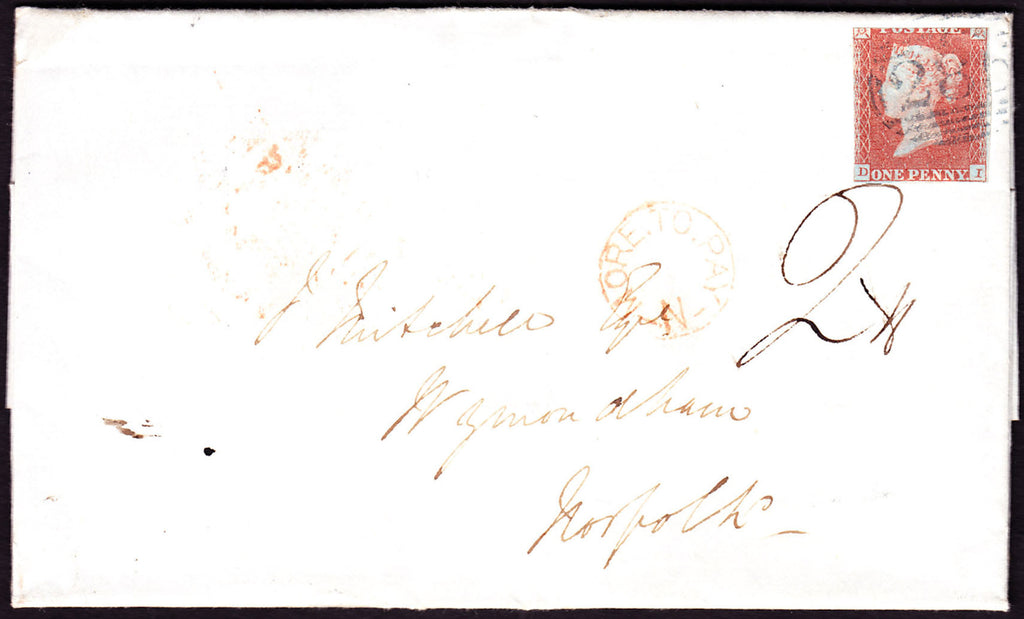 POSTAGE
D I
ONE PENNY
MORE.TO.PAY
N
2
J Mitchell Esqre
Wymondham
Norfolk